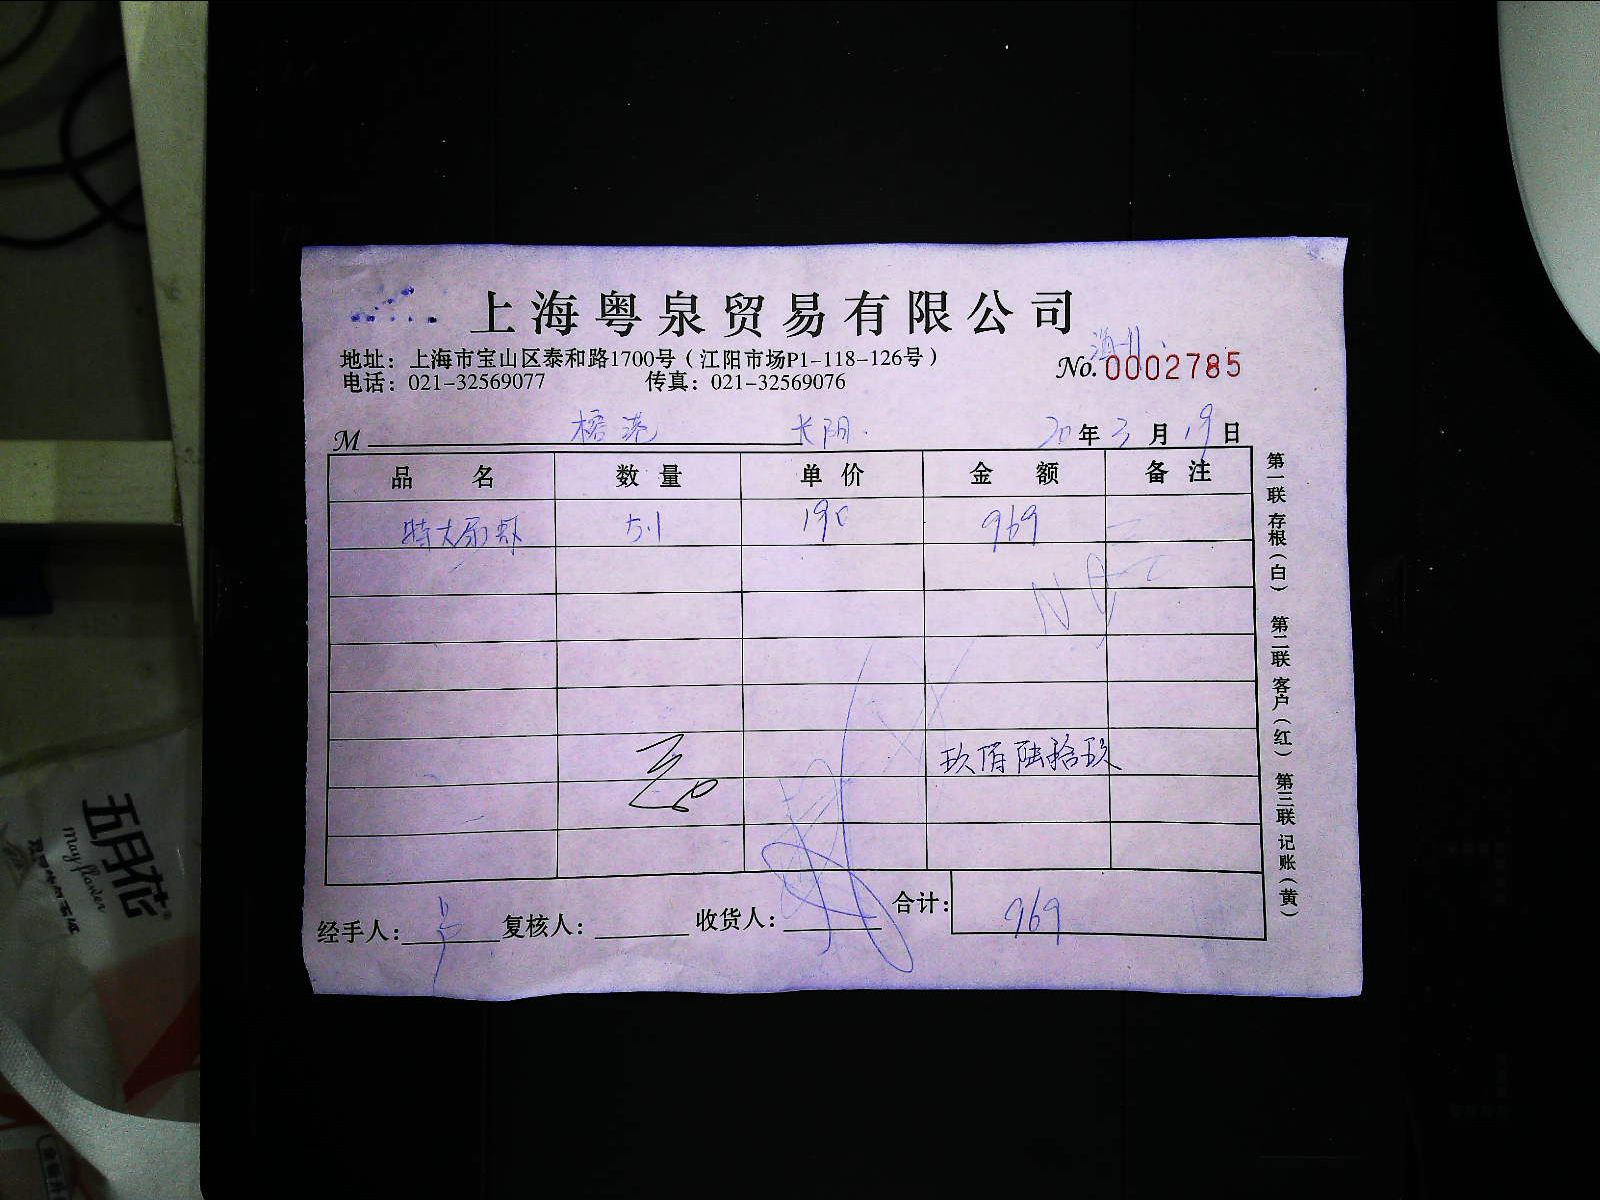 上海粤泉贸易有限公司
地址：上海市宝山区泰和路1700号（江阳市场P1-118-126号）
电话：021-32569077 传真：021-32569076
No.0002785
M 榕港 长阴. 20年3月19日
品名 数量 单价 金额 备注
特大扇虾 5.1 190 969
玖佰陆拾玖
经手人： 复核人： 收货人： 合计： 969
第一联 存根（白） 第二联 客户（红） 第三联 记账（黄）
五月花
may flower